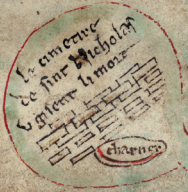 le cimetire
de sint nicholas
u gisent li mort
charner